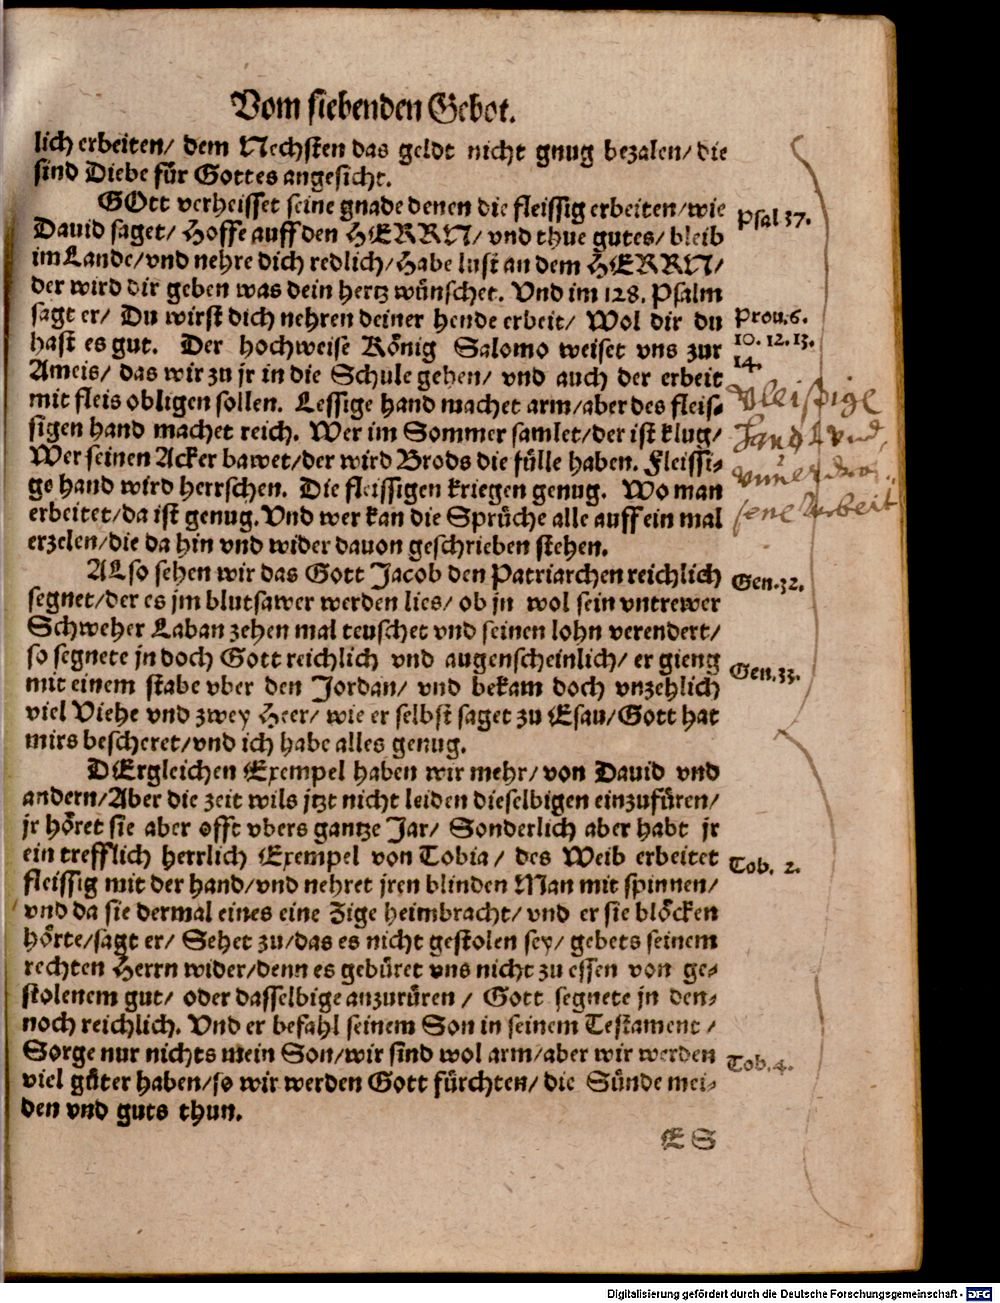 Vom siebenden Gebot.
lich erbeiten/ dem Nechsten das geldt nicht gnug bezalen/ die
sind Diebe für Gottes angesicht.
GOtt verheisset seine gnade denen die fleissig erbeiten/wie
Dauid saget/ Hoffe auff den HERRN/ vnd thue gutes/ bleib
im Lande/vnd nehre dich redlich/Habe lust an dem HERRN/
der wird dir geben was dein hertz wünschet. Vnd im 128. Psalm
sagt er/ Du wirst dich nehren deiner hende erbeit/ Wol dir du
hast es gut. Der hochweise König Salomo weiset vns zur
Ameis/ das wir zu jr in die Schule gehen/ vnd auch der erbeit
mit fleis obligen sollen. Lessige hand machet arm/aber des fleis-
sigen hand machet reich. Wer im Sommer samlet/der ist klug/
Wer seinen Acker bawet/der wird Brods die fülle haben. Fleissi-
ge hand wird herrschen. Die fleissigen kriegen genug. Wo man
erbeitet/da ist genug. Vnd wer kan die Sprüche alle auff ein mal
erzelen/die da hin vnd wider dauon geschrieben stehen.
ALso sehen wir das Gott Jacob den Patriarchen reichlich
segnet/der es jm blutsawer werden lies/ ob jn wol sein vntrewer
Schweher Laban zehen mal teuschet vnd seinen lohn verendert/
so segnete jn doch Gott reichlich vnd augenscheinlich/ er gieng
mit einem stabe vber den Jordan/ vnd bekam doch vnzehlich
viel Viehe vnd zwey Heer/ wie er selbst saget zu Esau/Gott hat
mirs bescheret/vnd ich habe alles genug.
DErgleichen Exempel haben wir mehr/von Dauid vnd
andern/Aber die zeit wils jtzt nicht leiden dieselbigen einzufüren/
jr höret sie aber offt vbers gantze Jar/ Sonderlich aber habt jr
ein trefflich herrlich Exempel von Tobia/ des Weib erbeitet
fleissig mit der hand/vnd nehret jren blinden Man mit spinnen/
vnd da sie dermal eines eine Zige heimbracht/ vnd er sie blöcken
hörte/sagt er/ Sehet zu/das es nicht gestolen sey/ gebets seinem
rechten Herrn wider/denn es gebüret vns nicht zu essen von ge-
stolenem gut/ oder dasselbige anzurüren/ Gott segnete jn den-
noch reichlich. Vnd er befahl seinem Son in seinem Testament/
Sorge nur nichts mein Son/wir sind wol arm/aber wir werden
viel güter haben/so wir werden Gott fürchten/ die Sünde mei-
den vnd guts thun.
ES
Psal 37.
Prou. 6.
10. 12. 13.
14.
Vleißige
Handt vnd
vnuerdros-
sene Arbeit
Gen. 32.
Gen. 33.
Tob. 2.
Tob. 4.
Digitalisierung gefördert durch die Deutsche Forschungsgemeinschaft - DFG